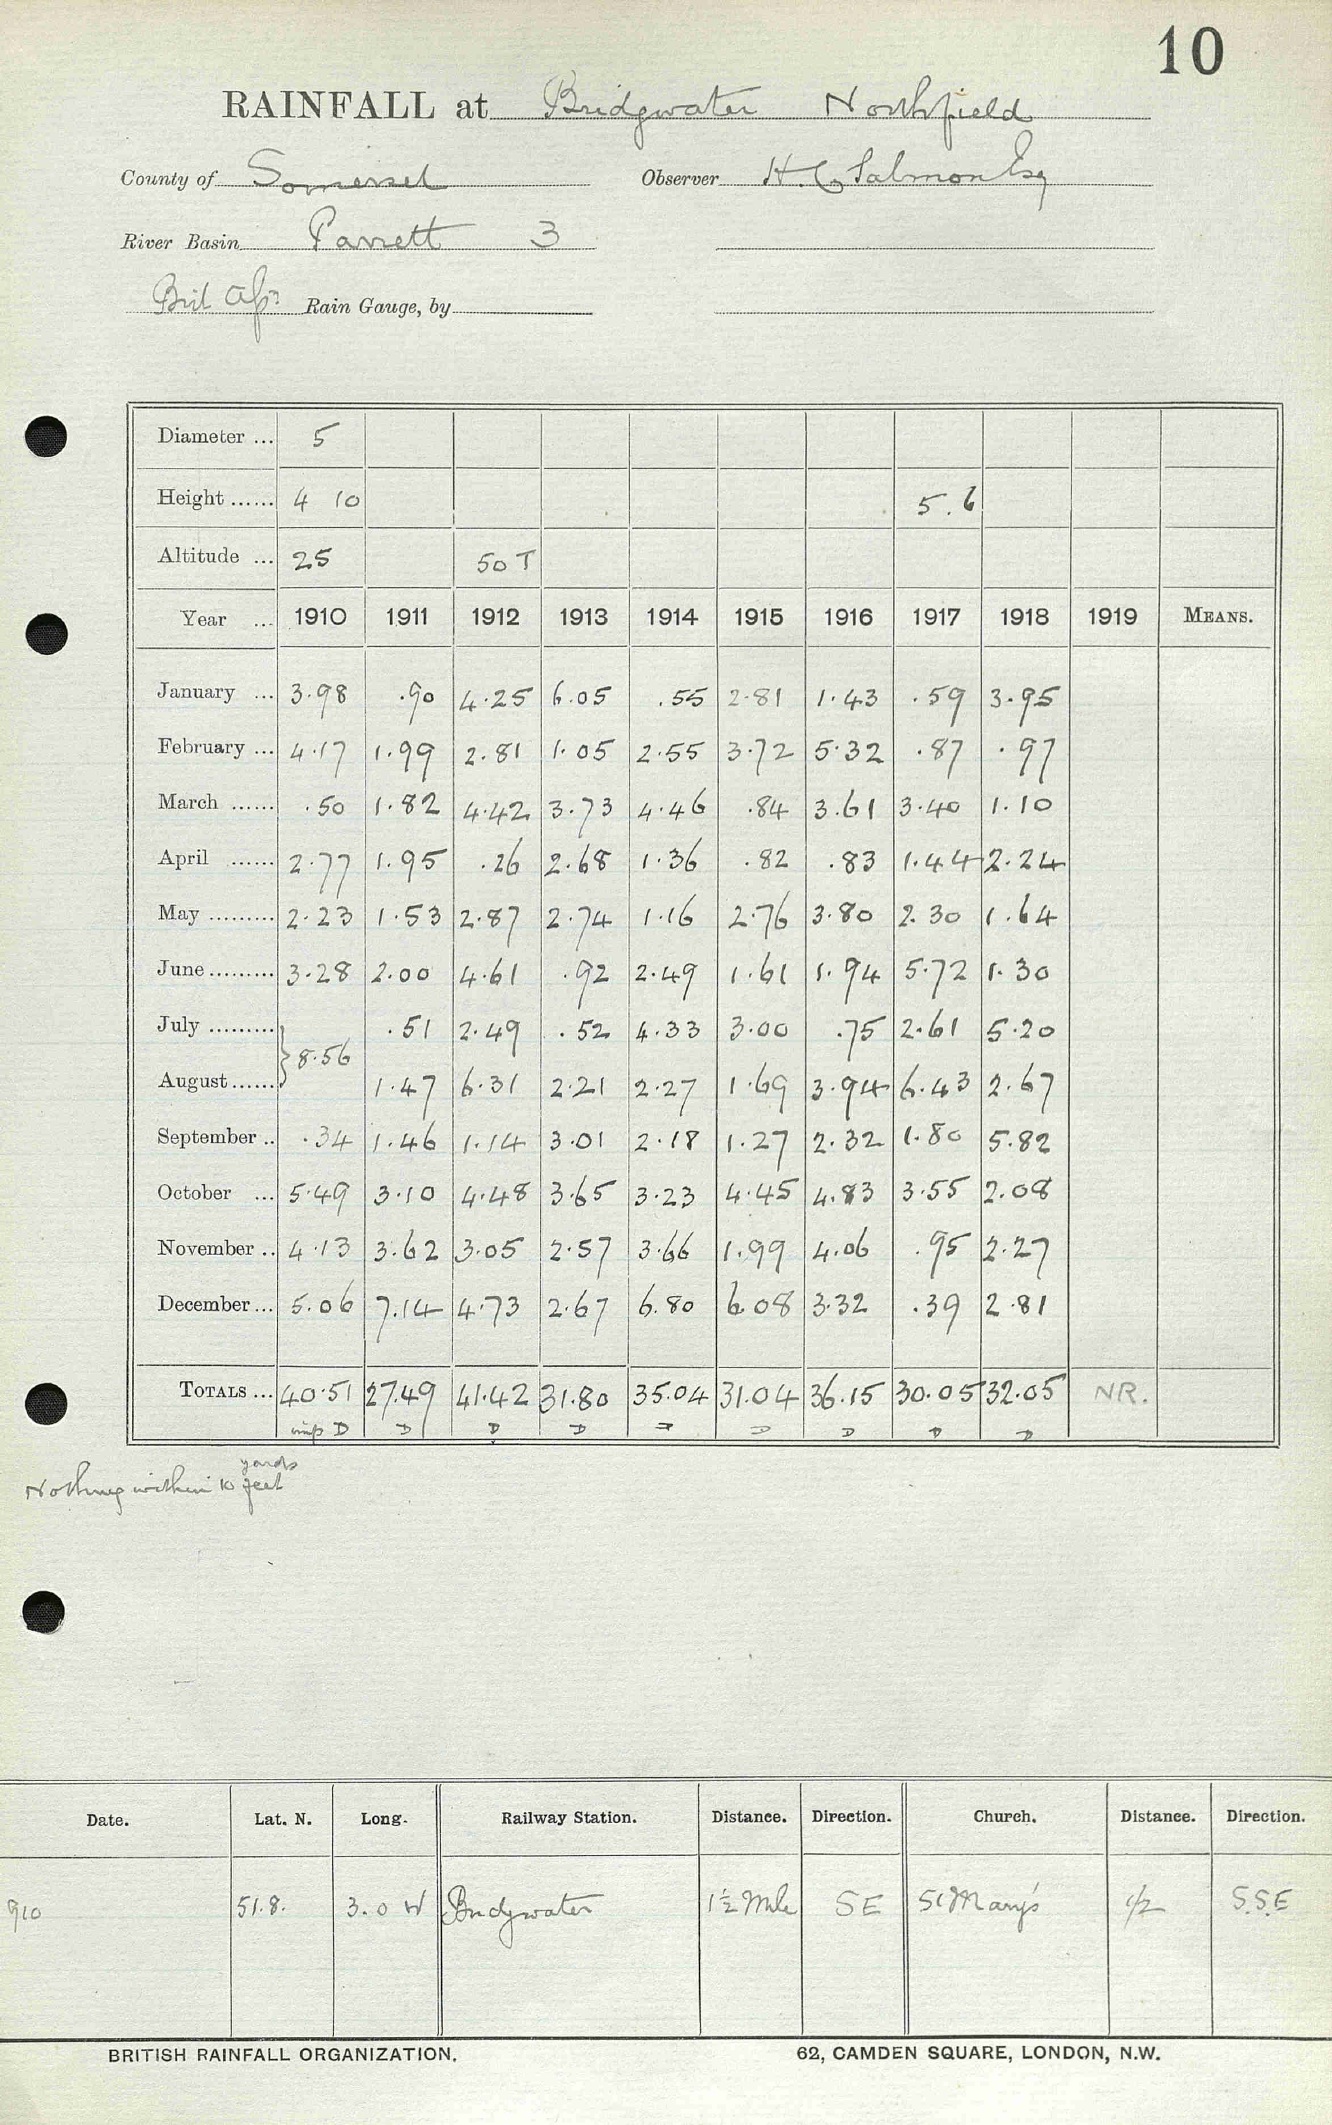 10
RAINFALL at Bridgwater Northfield
County of Somerset Observer H. C. Salmon Esq
River Basin Parrett 3
Rain Gauge, by
Diameter ... 5
Height ...... 4 10 5.6
Altitude ... 25 50 T
Year ... 1910 1911 1912 1913 1914 1915 1916 1917 1918 1919 MEANS.
January ... 3.98 .90 4.25 6.05 .55 2.81 1.43 .59 3.95
February ... 4.17 1.99 2.81 1.05 2.55 3.72 5.32 .87 .97
March ...... .50 1.82 4.42 3.73 4.46 .84 3.61 3.40 1.10
April ...... 2.77 1.95 .26 2.68 1.36 .82 .83 1.44 2.24
May ......... 2.23 1.53 2.87 2.74 1.16 2.76 3.80 2.30 1.64
June ......... 3.28 2.00 4.61 .92 2.49 1.61 1.94 5.72 1.30
July ......... .51 2.49 .52 4.33 3.00 .75 2.61 5.20
} 8.56
August ...... 1.47 6.31 2.21 2.27 1.69 3.94 6.43 2.67
September .. .34 1.46 1.14 3.01 2.18 1.27 2.32 1.80 5.82
October ... 5.49 3.10 4.48 3.65 3.23 4.45 4.83 3.55 2.08
November .. 4.13 3.62 3.05 2.57 3.66 1.99 4.06 .95 2.27
December ... 5.06 7.14 4.73 2.67 6.80 6.08 3.32 .39 2.81
TOTALS ... 40.51 27.49 41.42 31.80 35.04 31.04 36.15 30.05 32.05 NR.
D D D D D D D D D
yards
Nothing within 10 feet
Date. Lat. N. Long. Railway Station. Distance. Direction. Church. Distance. Direction.
910 51.8. 3.0 W Bridgwater 1½ Mile SE St Mary's 1/2 S.S.E
BRITISH RAINFALL ORGANIZATION. 62, CAMDEN SQUARE, LONDON, N.W.